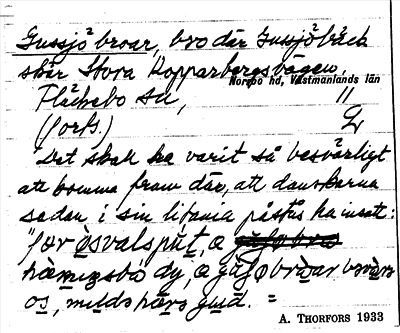 Gussjö broar, bro där Gussjöbäck
skär Stora Kopparbergsvägen,
Norrbo hd, Västmanlands län
Fläckebo sn, "
(forts.)
Det skall ha varit så besvärligt
att komma fram där, att danskarna
sedan i sin litania påstås ha insatt:
"för
dy, a
os, milds härs gud. =
A. THORFORS 1933